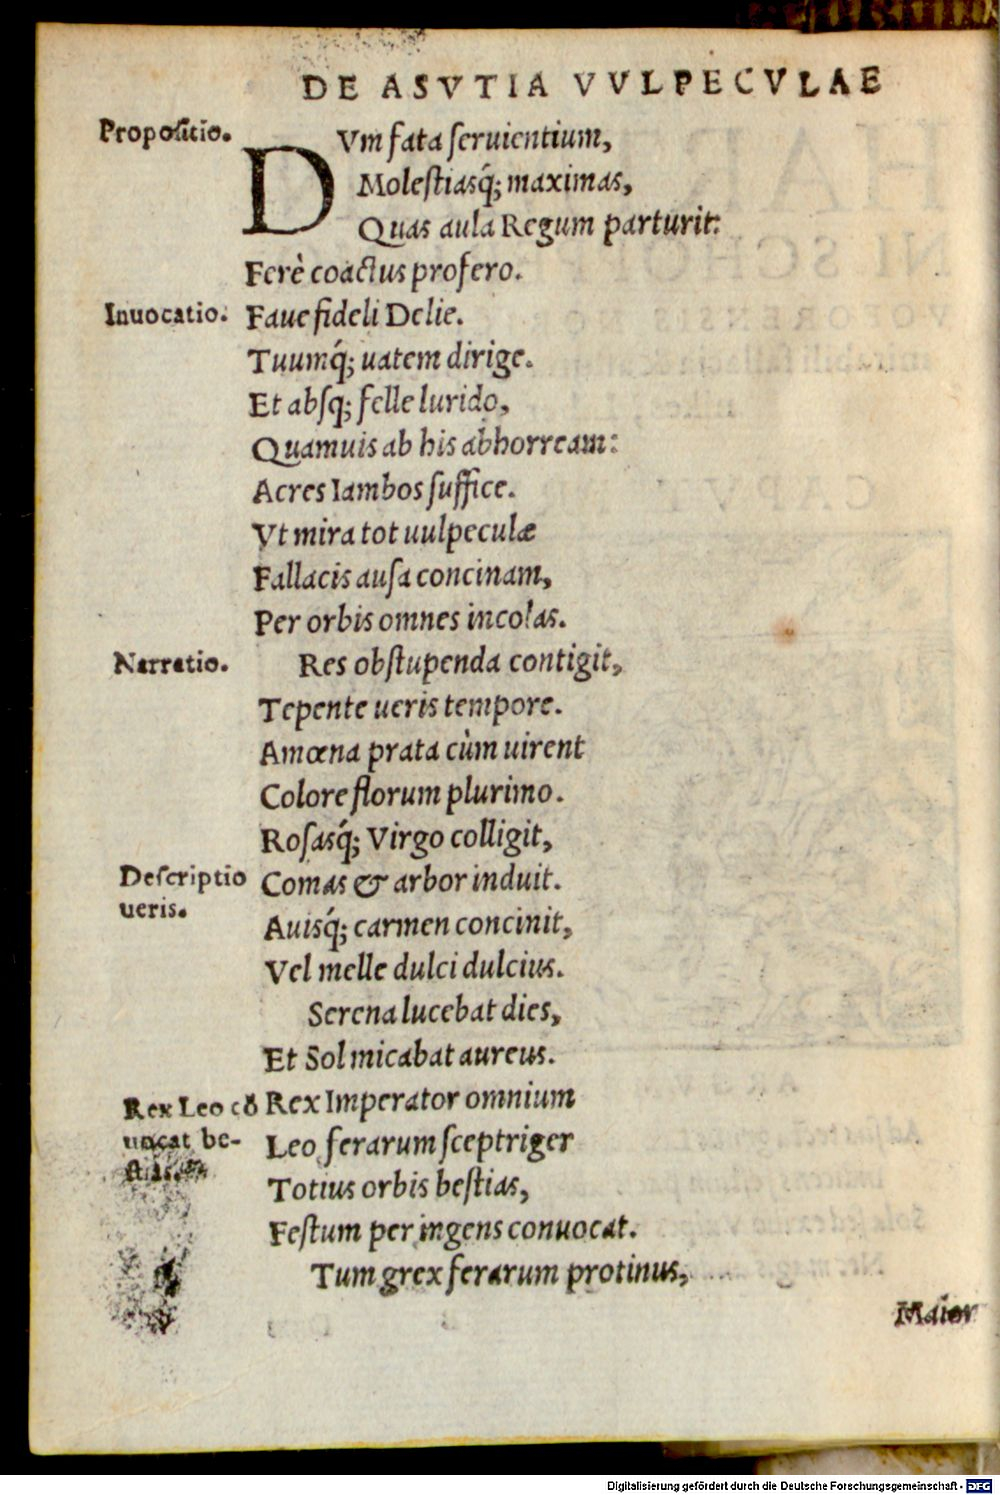 DE ASVTIA VVLPECVLAE
Propositio.
DVm fata ſeruientium,
Moleſtiasq́; maximas,
Quas aula Regum parturit:
Ferè coactus profero.
Inuocatio.
Faue fideli Delie.
Tuumq́; uatem dirige.
Et abſq; felle lurido,
Quamuis ab his abhorream:
Acres Iambos ſuffice.
Vt mira tot uulpeculæ
Fallacis auſa concinam,
Per orbis omnes incolas.
Narratio.
Res obſtupenda contigit,
Tepente ueris tempore.
Amœna prata cùm uirent
Colore florum plurimo.
Roſasq́; Virgo colligit,
Descriptio
Comas & arbor induit.
ueris.
Auisq́; carmen concinit,
Vel melle dulci dulcius.
Serena lucebat dies,
Et Sol micabat aureus.
Rex Leo cō
Rex Imperator omnium
uocat be-
Leo ferarum ſceptriger
ſtias.
Totius orbis beſtias,
Feſtum per ingens conuocat.
Tum grex ferarum protinus,
Maior
Digitalisierung gefördert durch die Deutsche Forschungsgemeinschaft - DFG